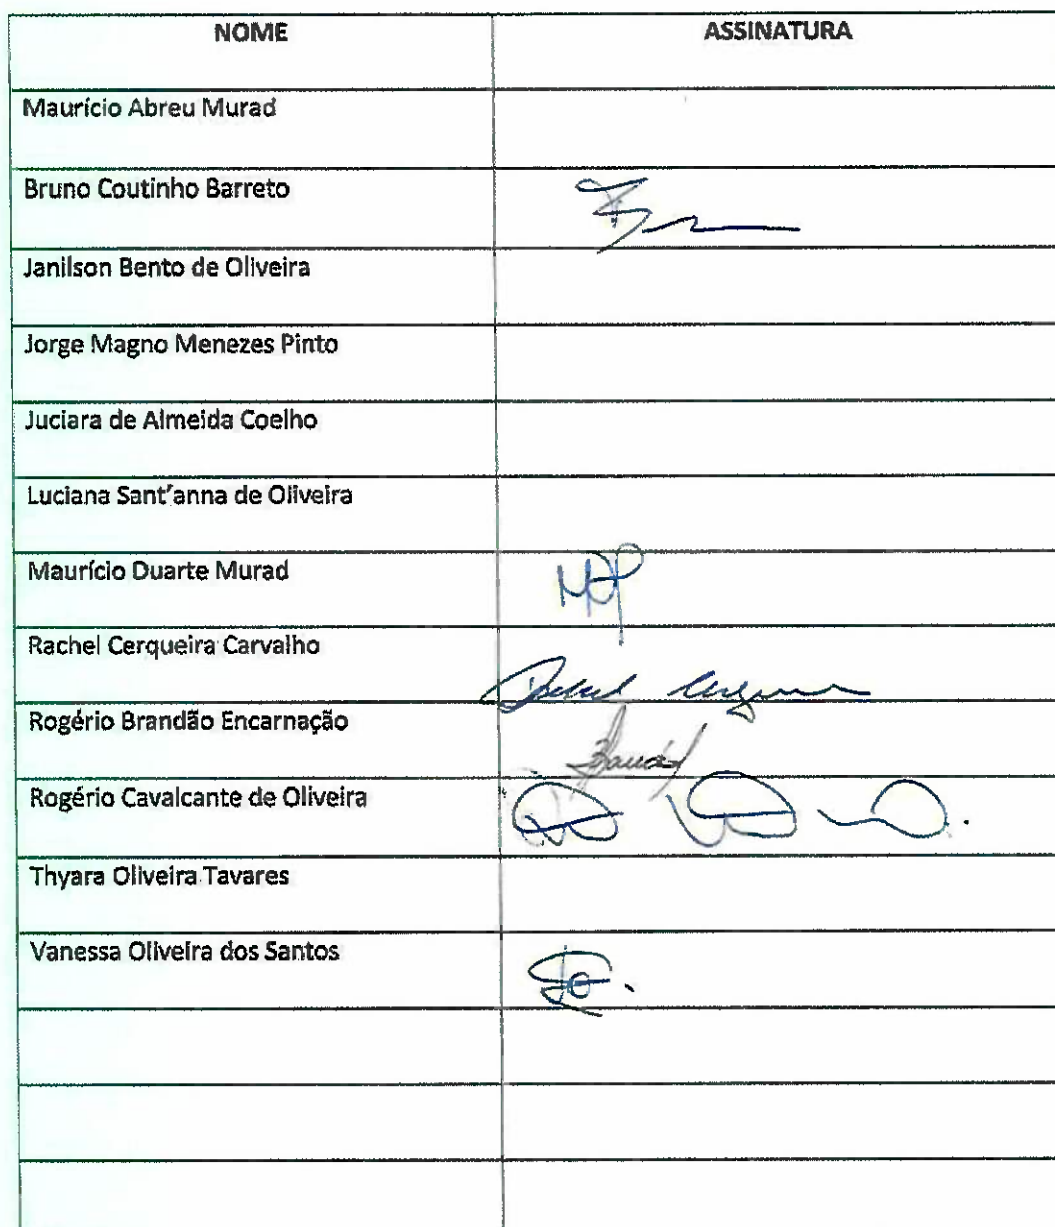 NOME ASSINATURA
Maurício Abreu Murad
Bruno Coutinho Barreto
Janilson Bento de Oliveira
Jorge Magno Menezes Pinto
Juciara de Almeida Coelho
Luciana Sant'anna de Oliveira
Maurício Duarte Murad
Rachel Cerqueira Carvalho
Rogério Brandão Encarnação
Rogério Cavalcante de Oliveira
Thyara Oliveira Tavares
Vanessa Oliveira dos Santos